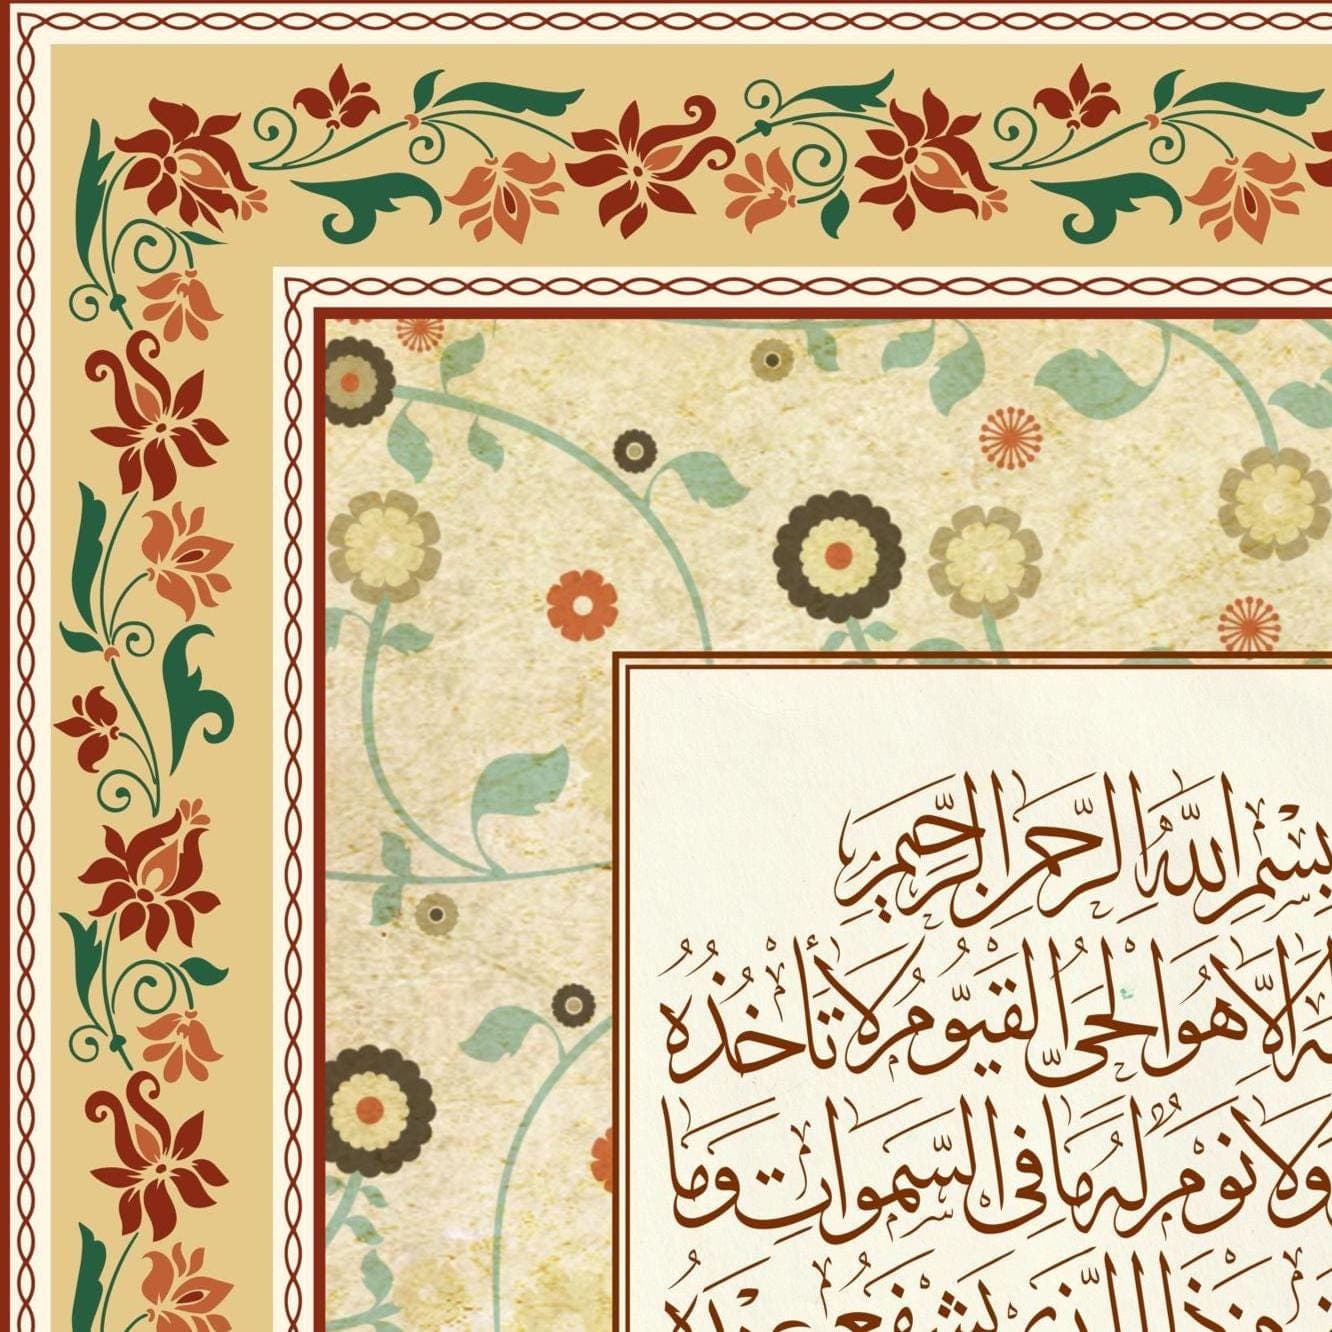 بِسْمِ اللَّهِ الرَّحْمَنِ الرَّحِيمِ
إِلَّا هُوَ الْحَيُّ الْقَيُّومُ لَا تَأْخُذُهُ
وَلَا نَوْمٌ لَهُ مَا فِي السَّمَوَاتِ وَمَا
ذَا الَّذِي يَشْفَعُ عِنْدَهُ